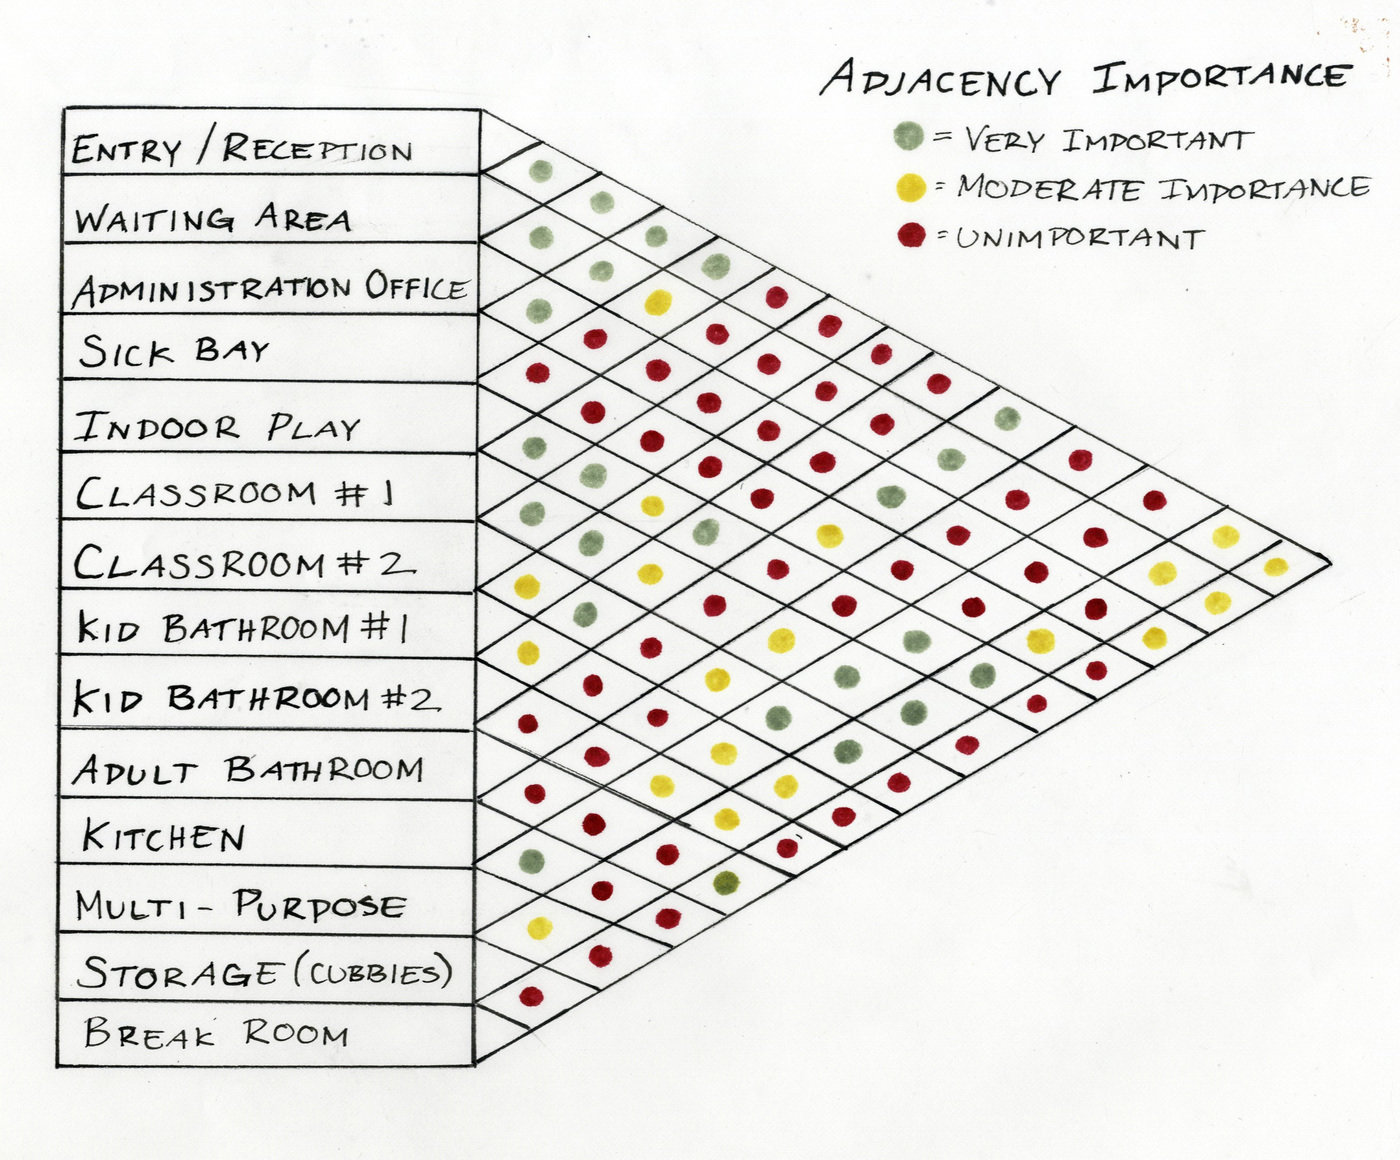 ADJACENCY IMPORTANCE
= VERY IMPORTANT
= MODERATE IMPORTANCE
= UNIMPORTANT
ENTRY / RECEPTION
WAITING AREA
ADMINISTRATION OFFICE
SICK BAY
INDOOR PLAY
CLASSROOM #1
CLASSROOM #2
KID BATHROOM #1
KID BATHROOM #2
ADULT BATHROOM
KITCHEN
MULTI-PURPOSE
STORAGE (CUBBIES)
BREAK ROOM